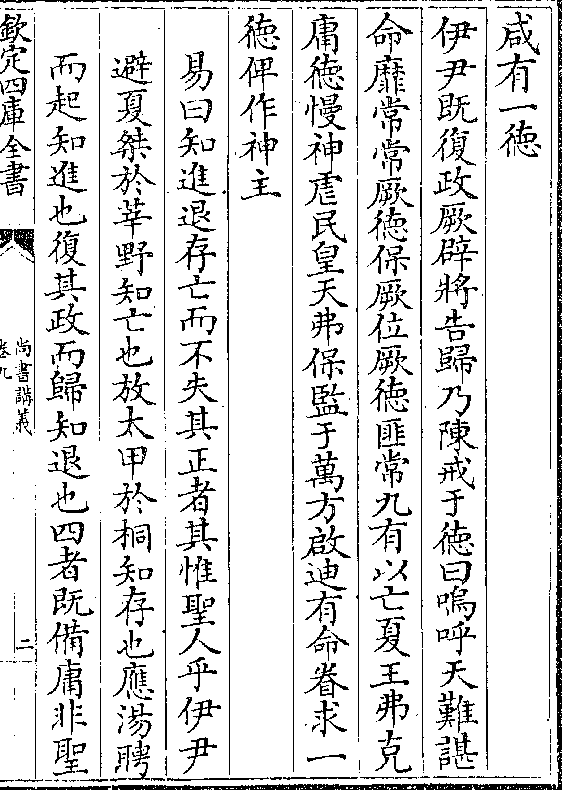 咸有一徳
伊尹既復政厥辟將告歸乃陳戒于徳曰嗚呼天難諶
命靡常常厥徳保厥位厥徳匪常九有以亡夏王弗克
庸徳慢神虐民皇天弗保監于萬方啟迪有命眷求一
徳俾作神主
易曰知進退存亡而不失其正者其惟聖人乎伊尹
避夏桀於莘野知亡也放太甲於桐知存也應湯聘
而起知進也復其政而歸知退也四者既備庸非聖
欽定四庫全書
尚書講義
卷九
二